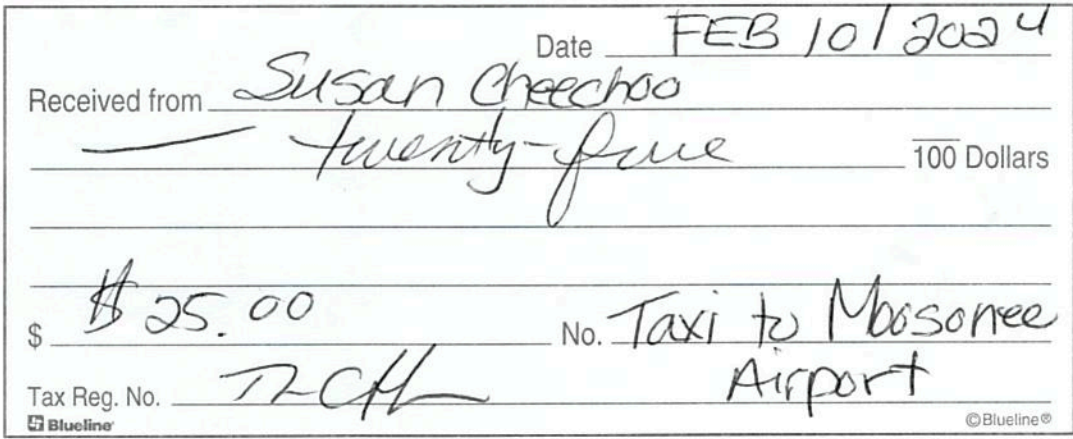 Date FEB 10/2024
Received from Susan Cheechoo
— twenty-five 100 Dollars
$ $25.00 No. Taxi to Moosonee
Airport
Tax Reg. No.
Blueline ©Blueline®